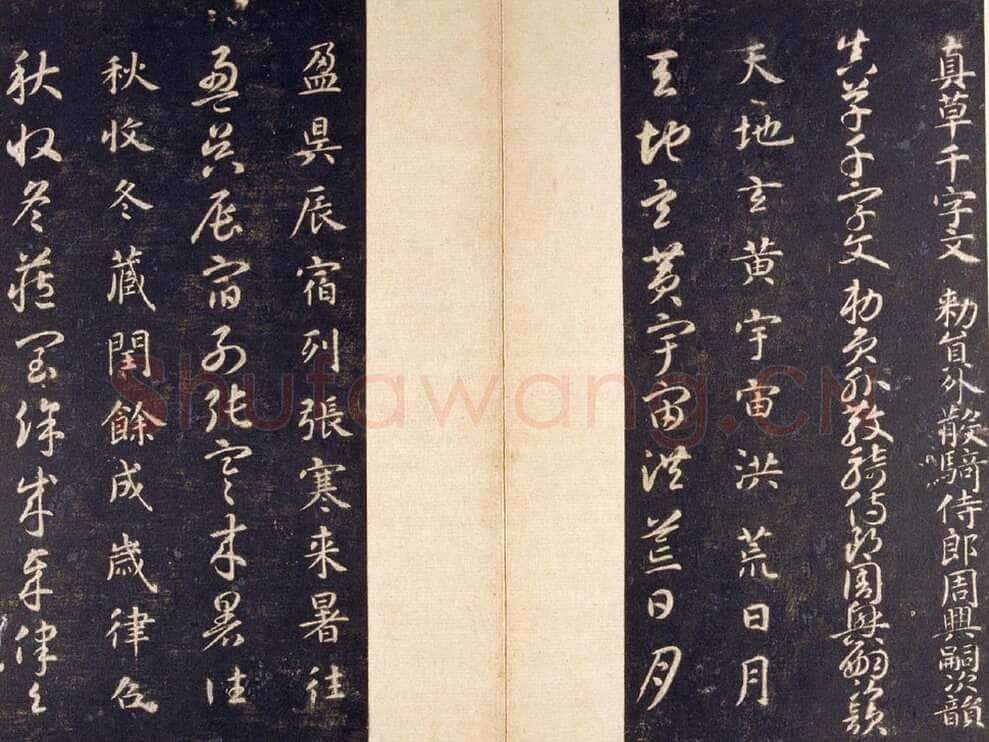 真草千字文 勅員外散騎侍郎周興嗣次韻
真草千字文 勅員外散騎侍郎周興嗣次韻
天地玄黄宇宙洪荒日月
天地玄黄宇宙洪荒日月
盈昃辰宿列張寒来暑往
盈昃辰宿列張寒来暑往
秋收冬蔵閏餘成歳律呂
秋收冬蔵閏餘成歳律呂
Shufawang.CN